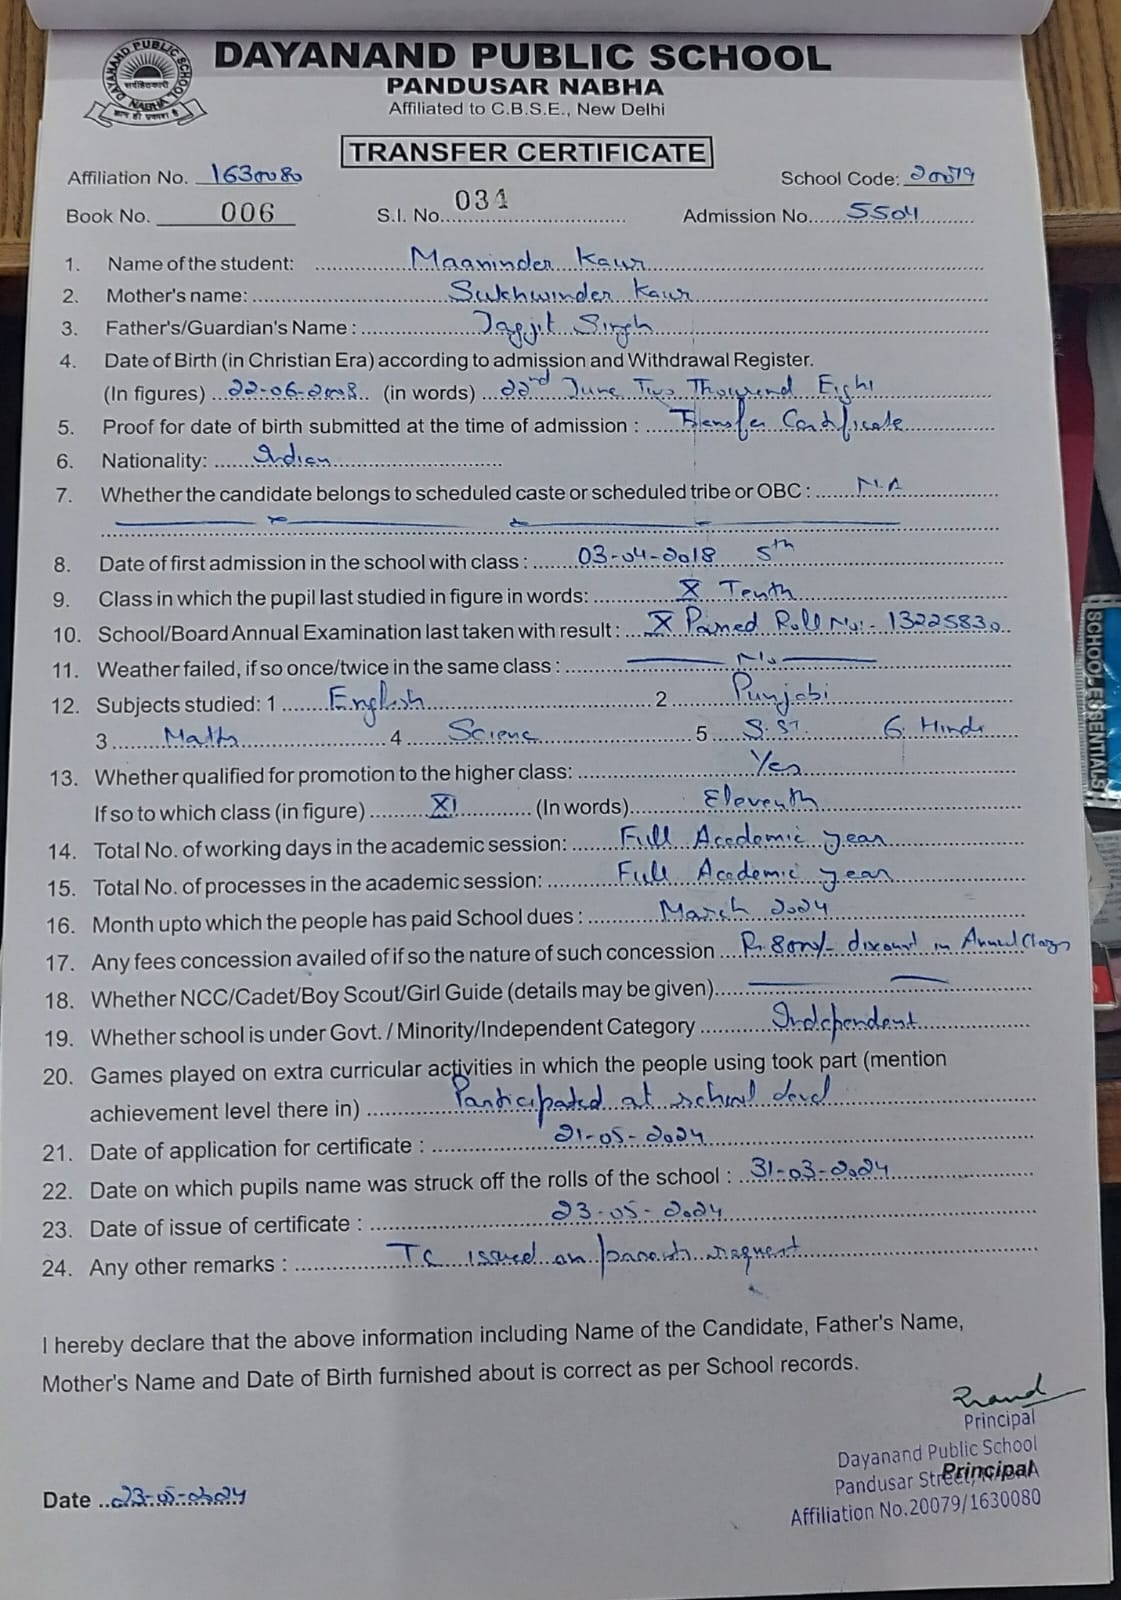 DAYANAND PUBLIC SCHOOL
NABHA
DAYANAND PUBLIC SCHOOL
PANDUSAR NABHA
Affiliated to C.B.S.E., New Delhi
TRANSFER CERTIFICATE
Affiliation No. 1630080 School Code: 20079
Book No. 006 S.I. No. 034 Admission No. 5504
1. Name of the student: Maaninder Kaur
2. Mother's name: Sukhwinder Kaur
3. Father's/Guardian's Name : Jagjit Singh
4. Date of Birth (in Christian Era) according to admission and Withdrawal Register.
(In figures) 22-06-2008 (in words) 22nd June Two Thousand Eight
5. Proof for date of birth submitted at the time of admission : Transfer Certificate
6. Nationality: Indian
7. Whether the candidate belongs to scheduled caste or scheduled tribe or OBC : N.A
8. Date of first admission in the school with class : 03-04-2018 5th
9. Class in which the pupil last studied in figure in words: X Tenth
10. School/Board Annual Examination last taken with result : X Passed Roll No:- 13225830
11. Weather failed, if so once/twice in the same class : No
12. Subjects studied: 1 English 2 Punjabi
3 Math 4 Science 5 S.ST. 6. Hindi
13. Whether qualified for promotion to the higher class: Yes
If so to which class (in figure) XI (In words) Eleventh
14. Total No. of working days in the academic session: Full Academic year
15. Total No. of processes in the academic session: Full Academic year
16. Month upto which the people has paid School dues : March 2024
17. Any fees concession availed of if so the nature of such concession Rs. 8000/- discount in Annual
18. Whether NCC/Cadet/Boy Scout/Girl Guide (details may be given)
19. Whether school is under Govt. / Minority/Independent Category Independent
20. Games played on extra curricular activities in which the people using took part (mention
achievement level there in) Participated at school level
21. Date of application for certificate : 21-05-2024
22. Date on which pupils name was struck off the rolls of the school : 31-03-2024
23. Date of issue of certificate : 23-05-2024
24. Any other remarks : TC issued on parents request
I hereby declare that the above information including Name of the Candidate, Father's Name,
Mother's Name and Date of Birth furnished about is correct as per School records.
Principal
Dayanand Public School
Pandusar Street,
Principal
Affiliation No.20079/1630080
Date 23-05-2024
SCHOOL ESSENTIALS